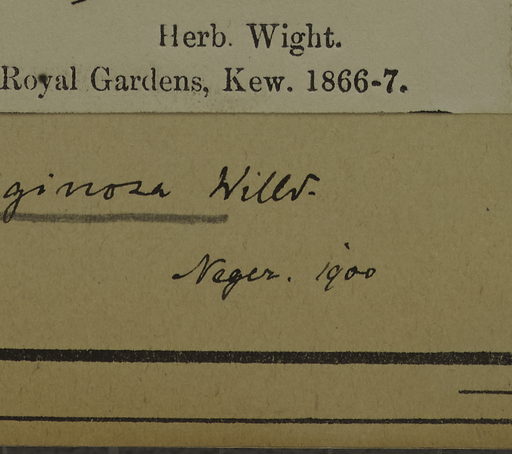 Herb. Wight.
Royal Gardens, Kew. 1866-7.
ginosa Willd.
Neger. 1900